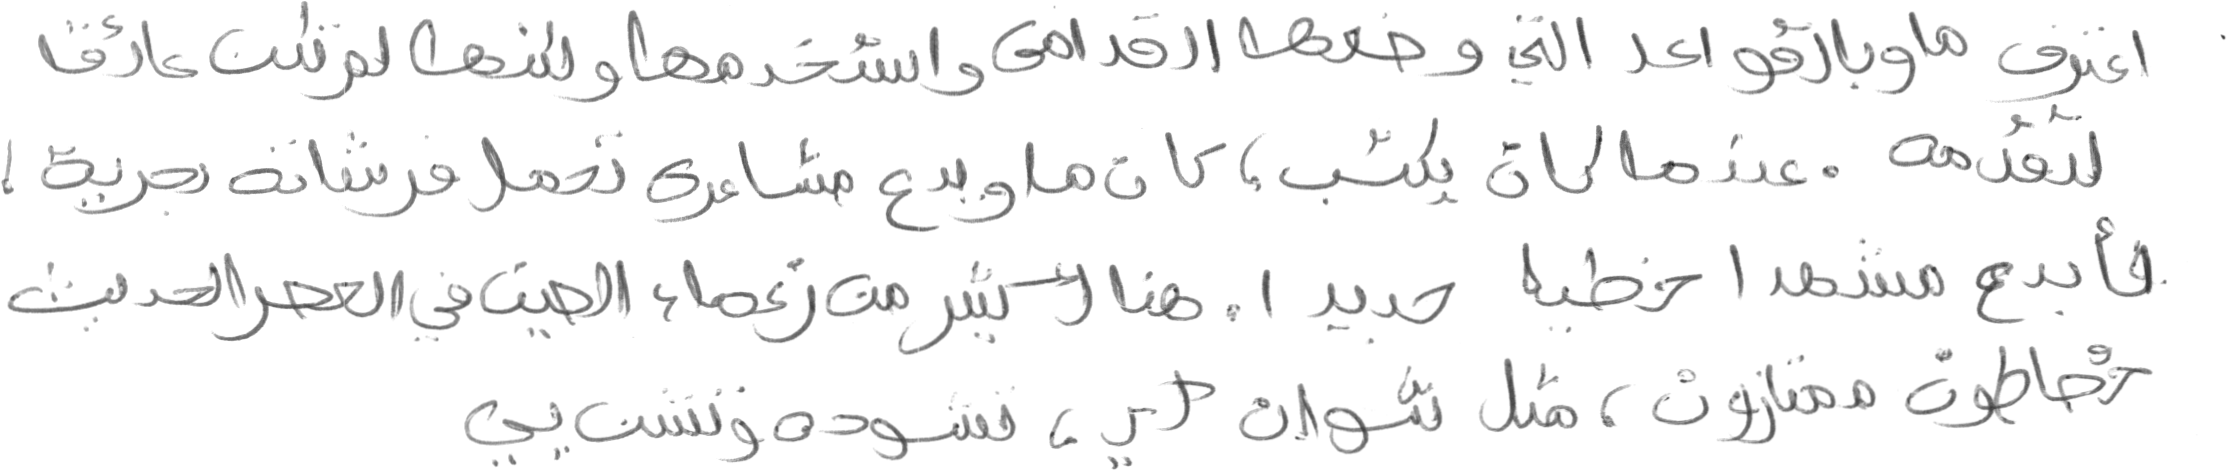 اعترف ماو بالقواعد التي وضعها القدامى واستخدمها ولكنها لم تكن عائقا
لتقدُّمه. عندما كان يكتب، كان ماو يدع مشاعره تحمل فرشاته بحرية،
فأبدع مشهدا خطيا جديدا. هناك كثير من زعماء الصين في العصر الحديث
خطاطون ممتازون، مثل شوان لي، تشوده وتشن يي